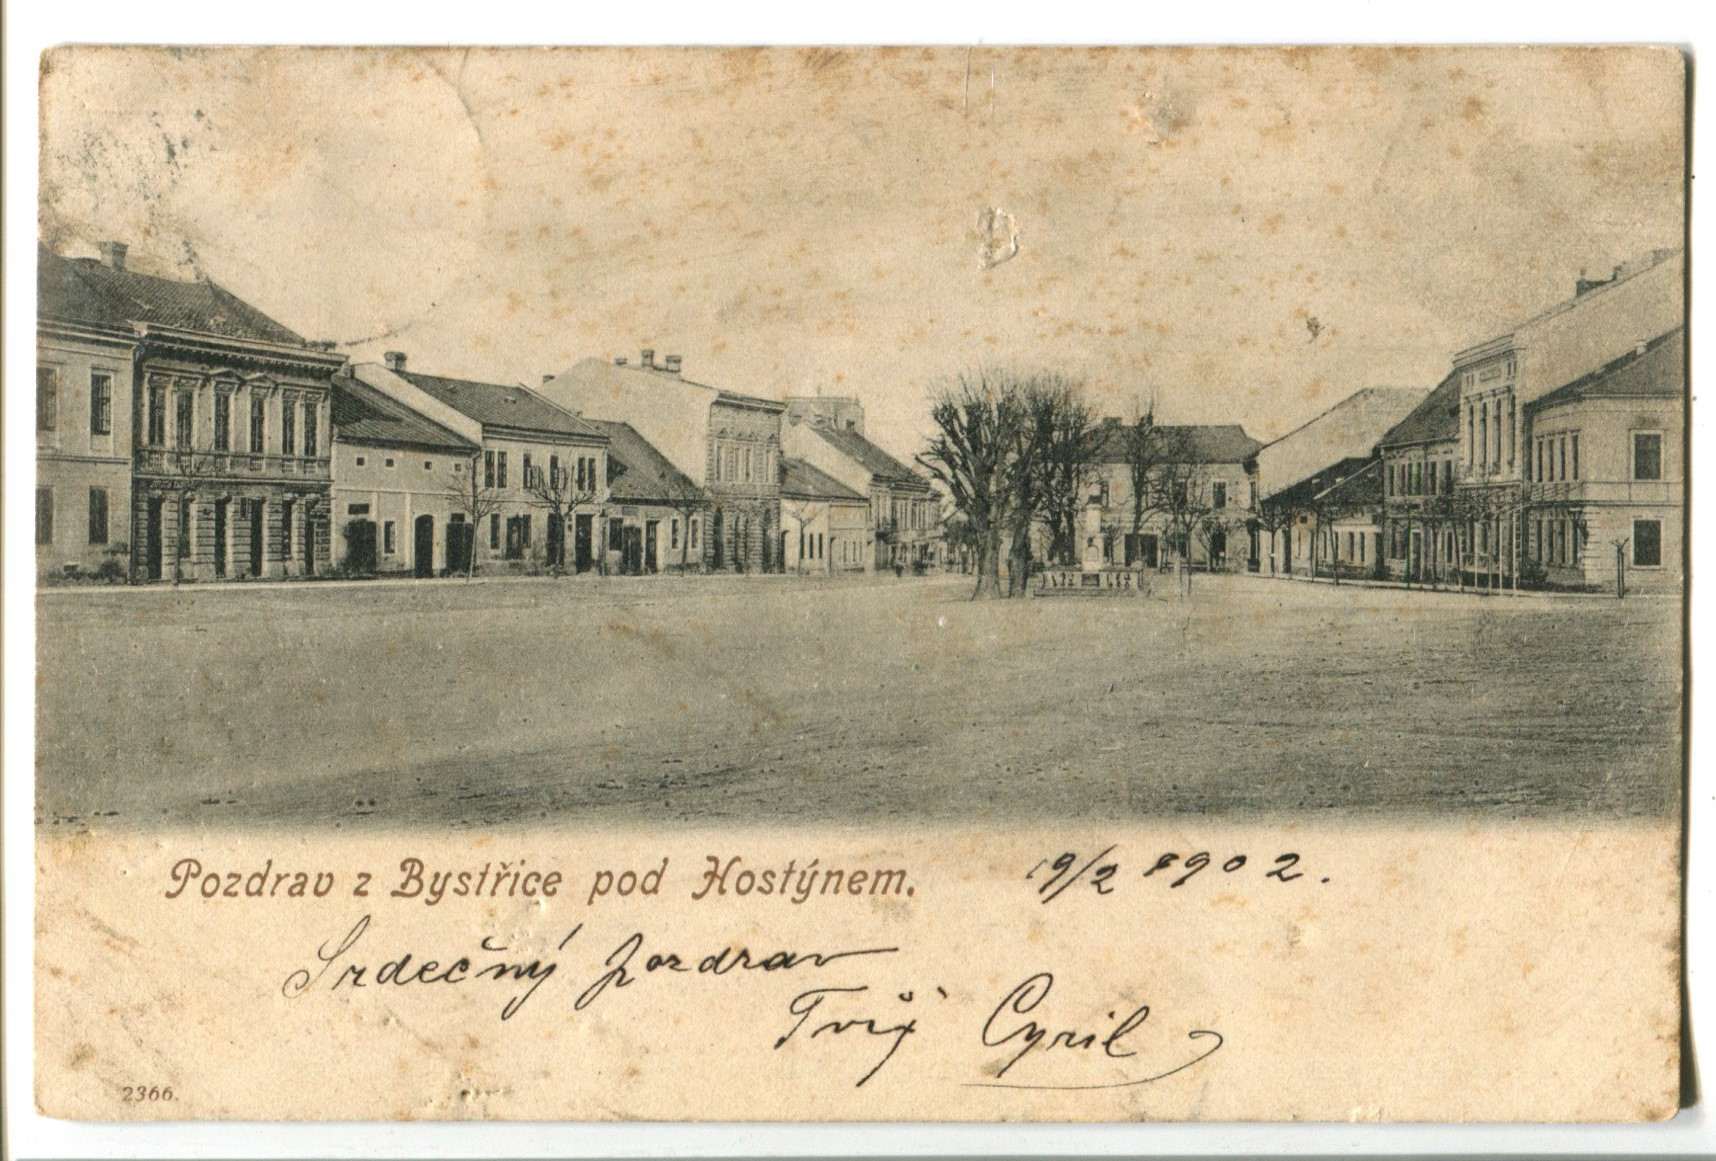 Pozdrav z Bystřice pod Hostýnem.
19/2 1902.
Srdečný pozdrav
Tvůj Cyril
2366.